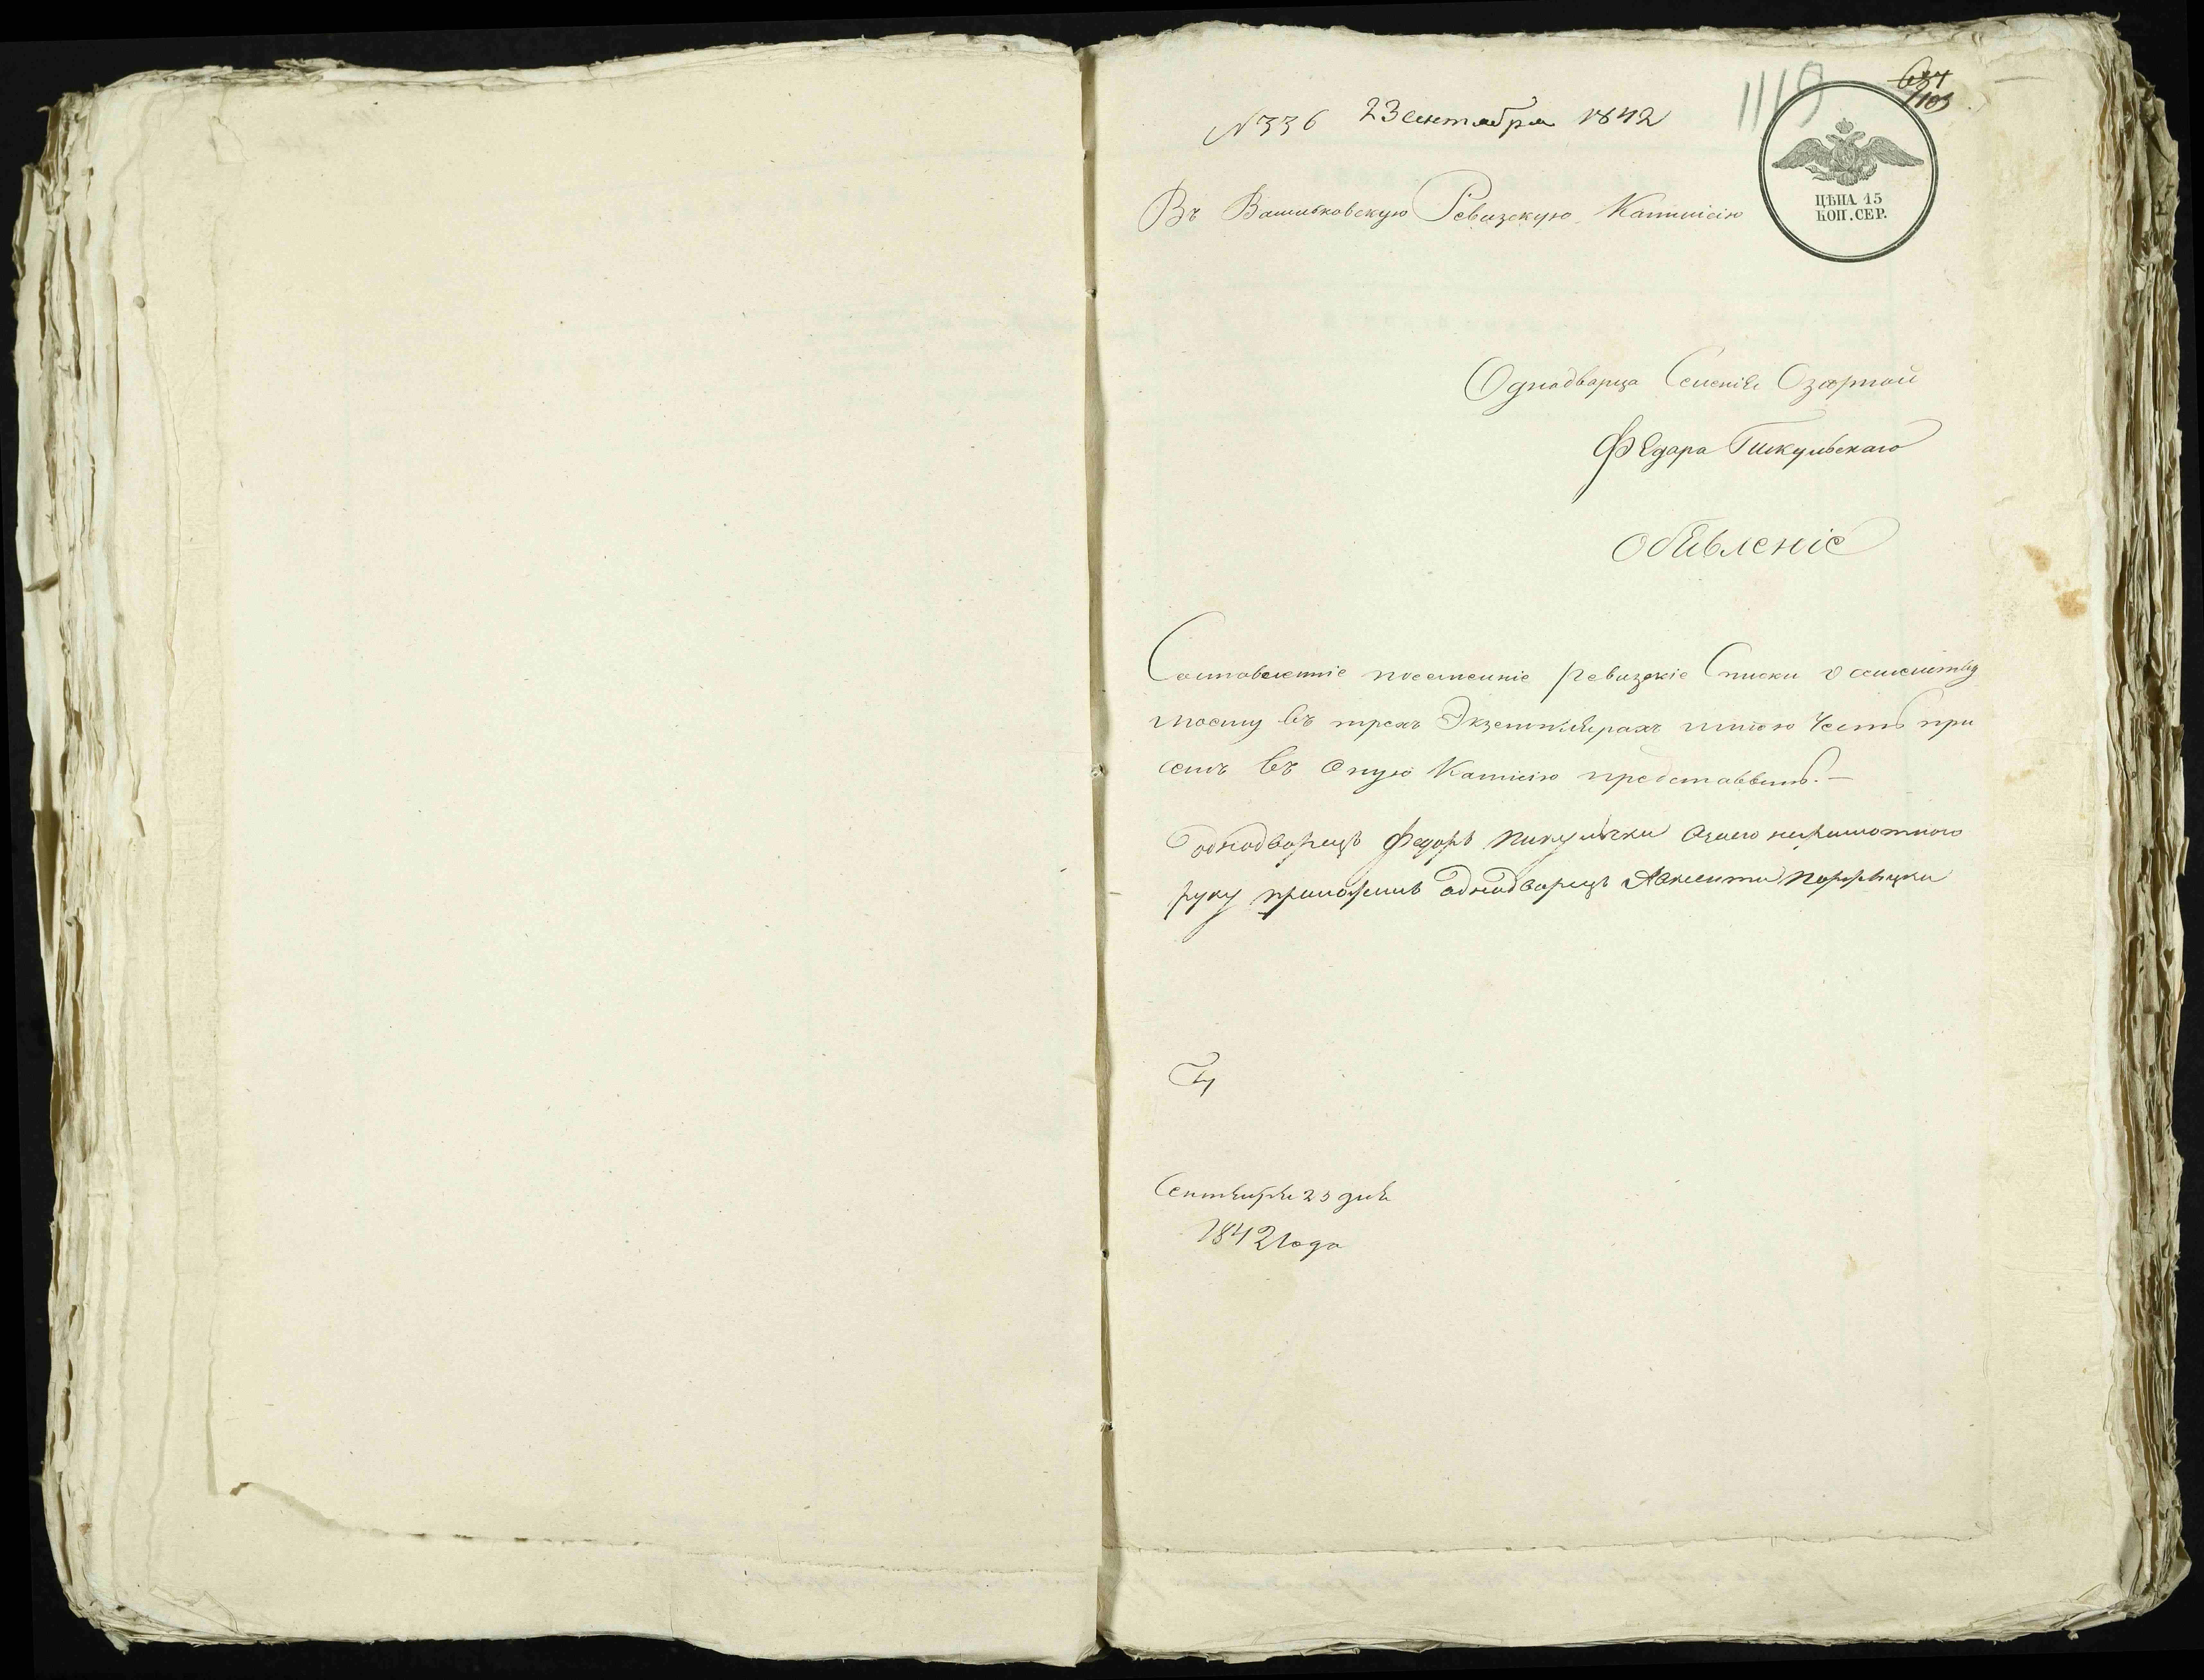 1119
634
1103
N 336 23 Сентября 1842
ЦѢНА 15
КОП. СЕР.
Въ Васильковскую Ревизскую Каммісію
Однодворца Селенія Озорной
Федара Пикульскаго
Объявленіе
Составленніе посеменніе ревизскіе Списки о семействѣ
моему въ трехъ Экземплярахъ имѣю честь при
семъ въ оную Камисію представвить. —
Однодворецъ Федоръ Пикулски азаего неграмотного
руку приложилъ однодворецъ Авксенти
Сентября 23 дня
1842 года